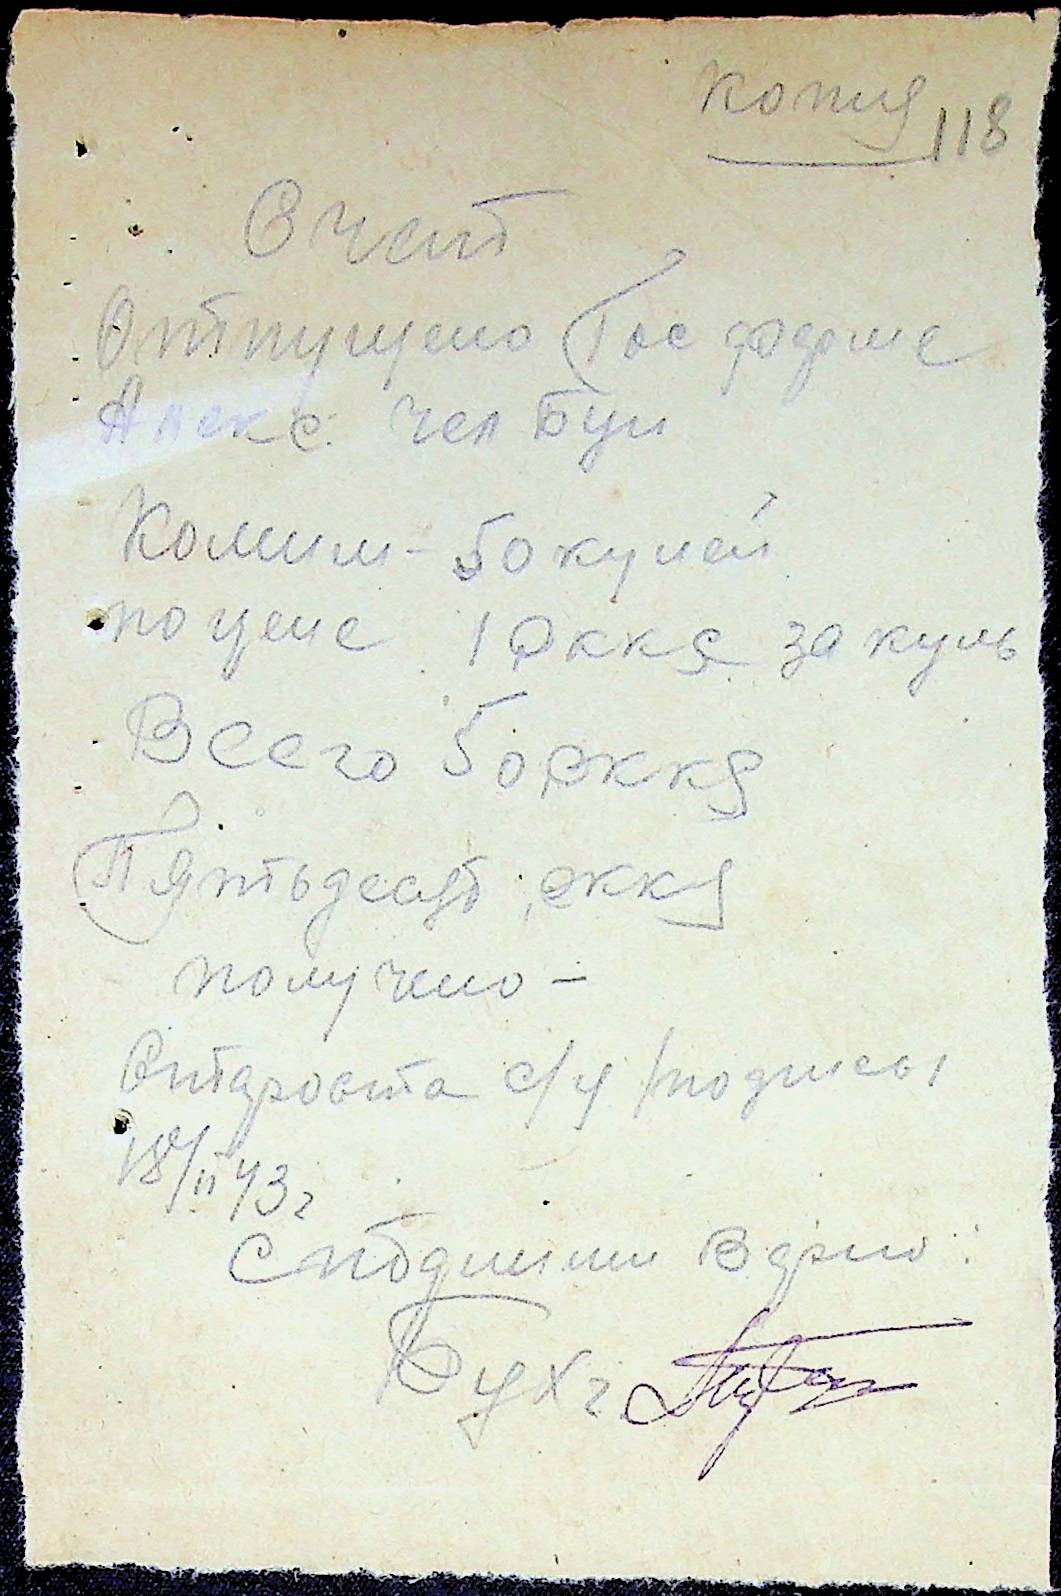 Копия
118
Счет
Отпущено Госферме
Алекс. Чел Бун
Комыш - 50 кулей
по цене 1 ркка за куль
Всего 50 ркка
Пятьдесят ркка
получено -
Староста с/у /подпись/
18/II 43 г
С подлинным верно:
Бухг.